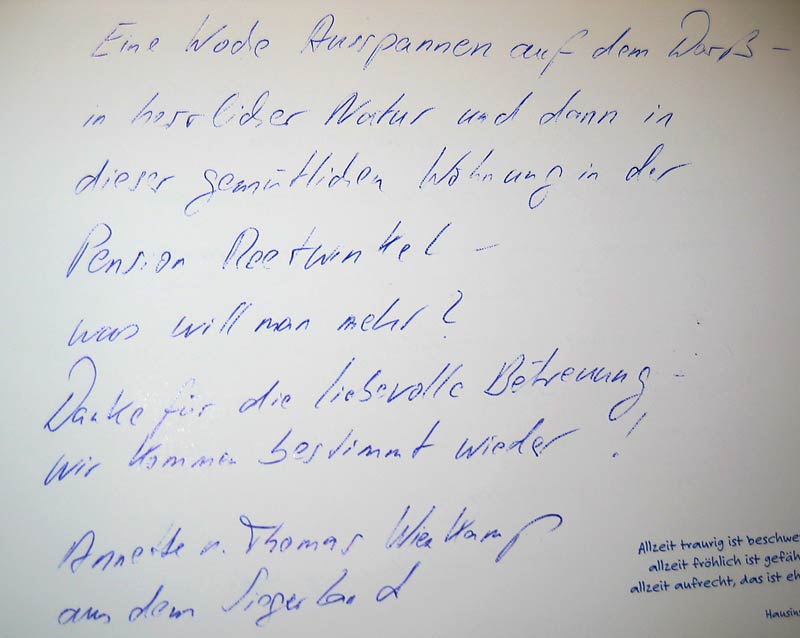 Eine Woche Ausspannen auf dem Darß –
in herrlicher Natur und dann in
dieser gemütlichen Wohnung in der
Pension Reetwinkel –
was will man mehr?
Danke für die liebevolle Betreuung –
wir kommen bestimmt wieder!
Annette u. Thomas Wienkamp
aus dem Siegerland
Allzeit traurig ist beschwe
allzeit fröhlich ist gefäh
allzeit aufrecht, das ist eh
Hausins